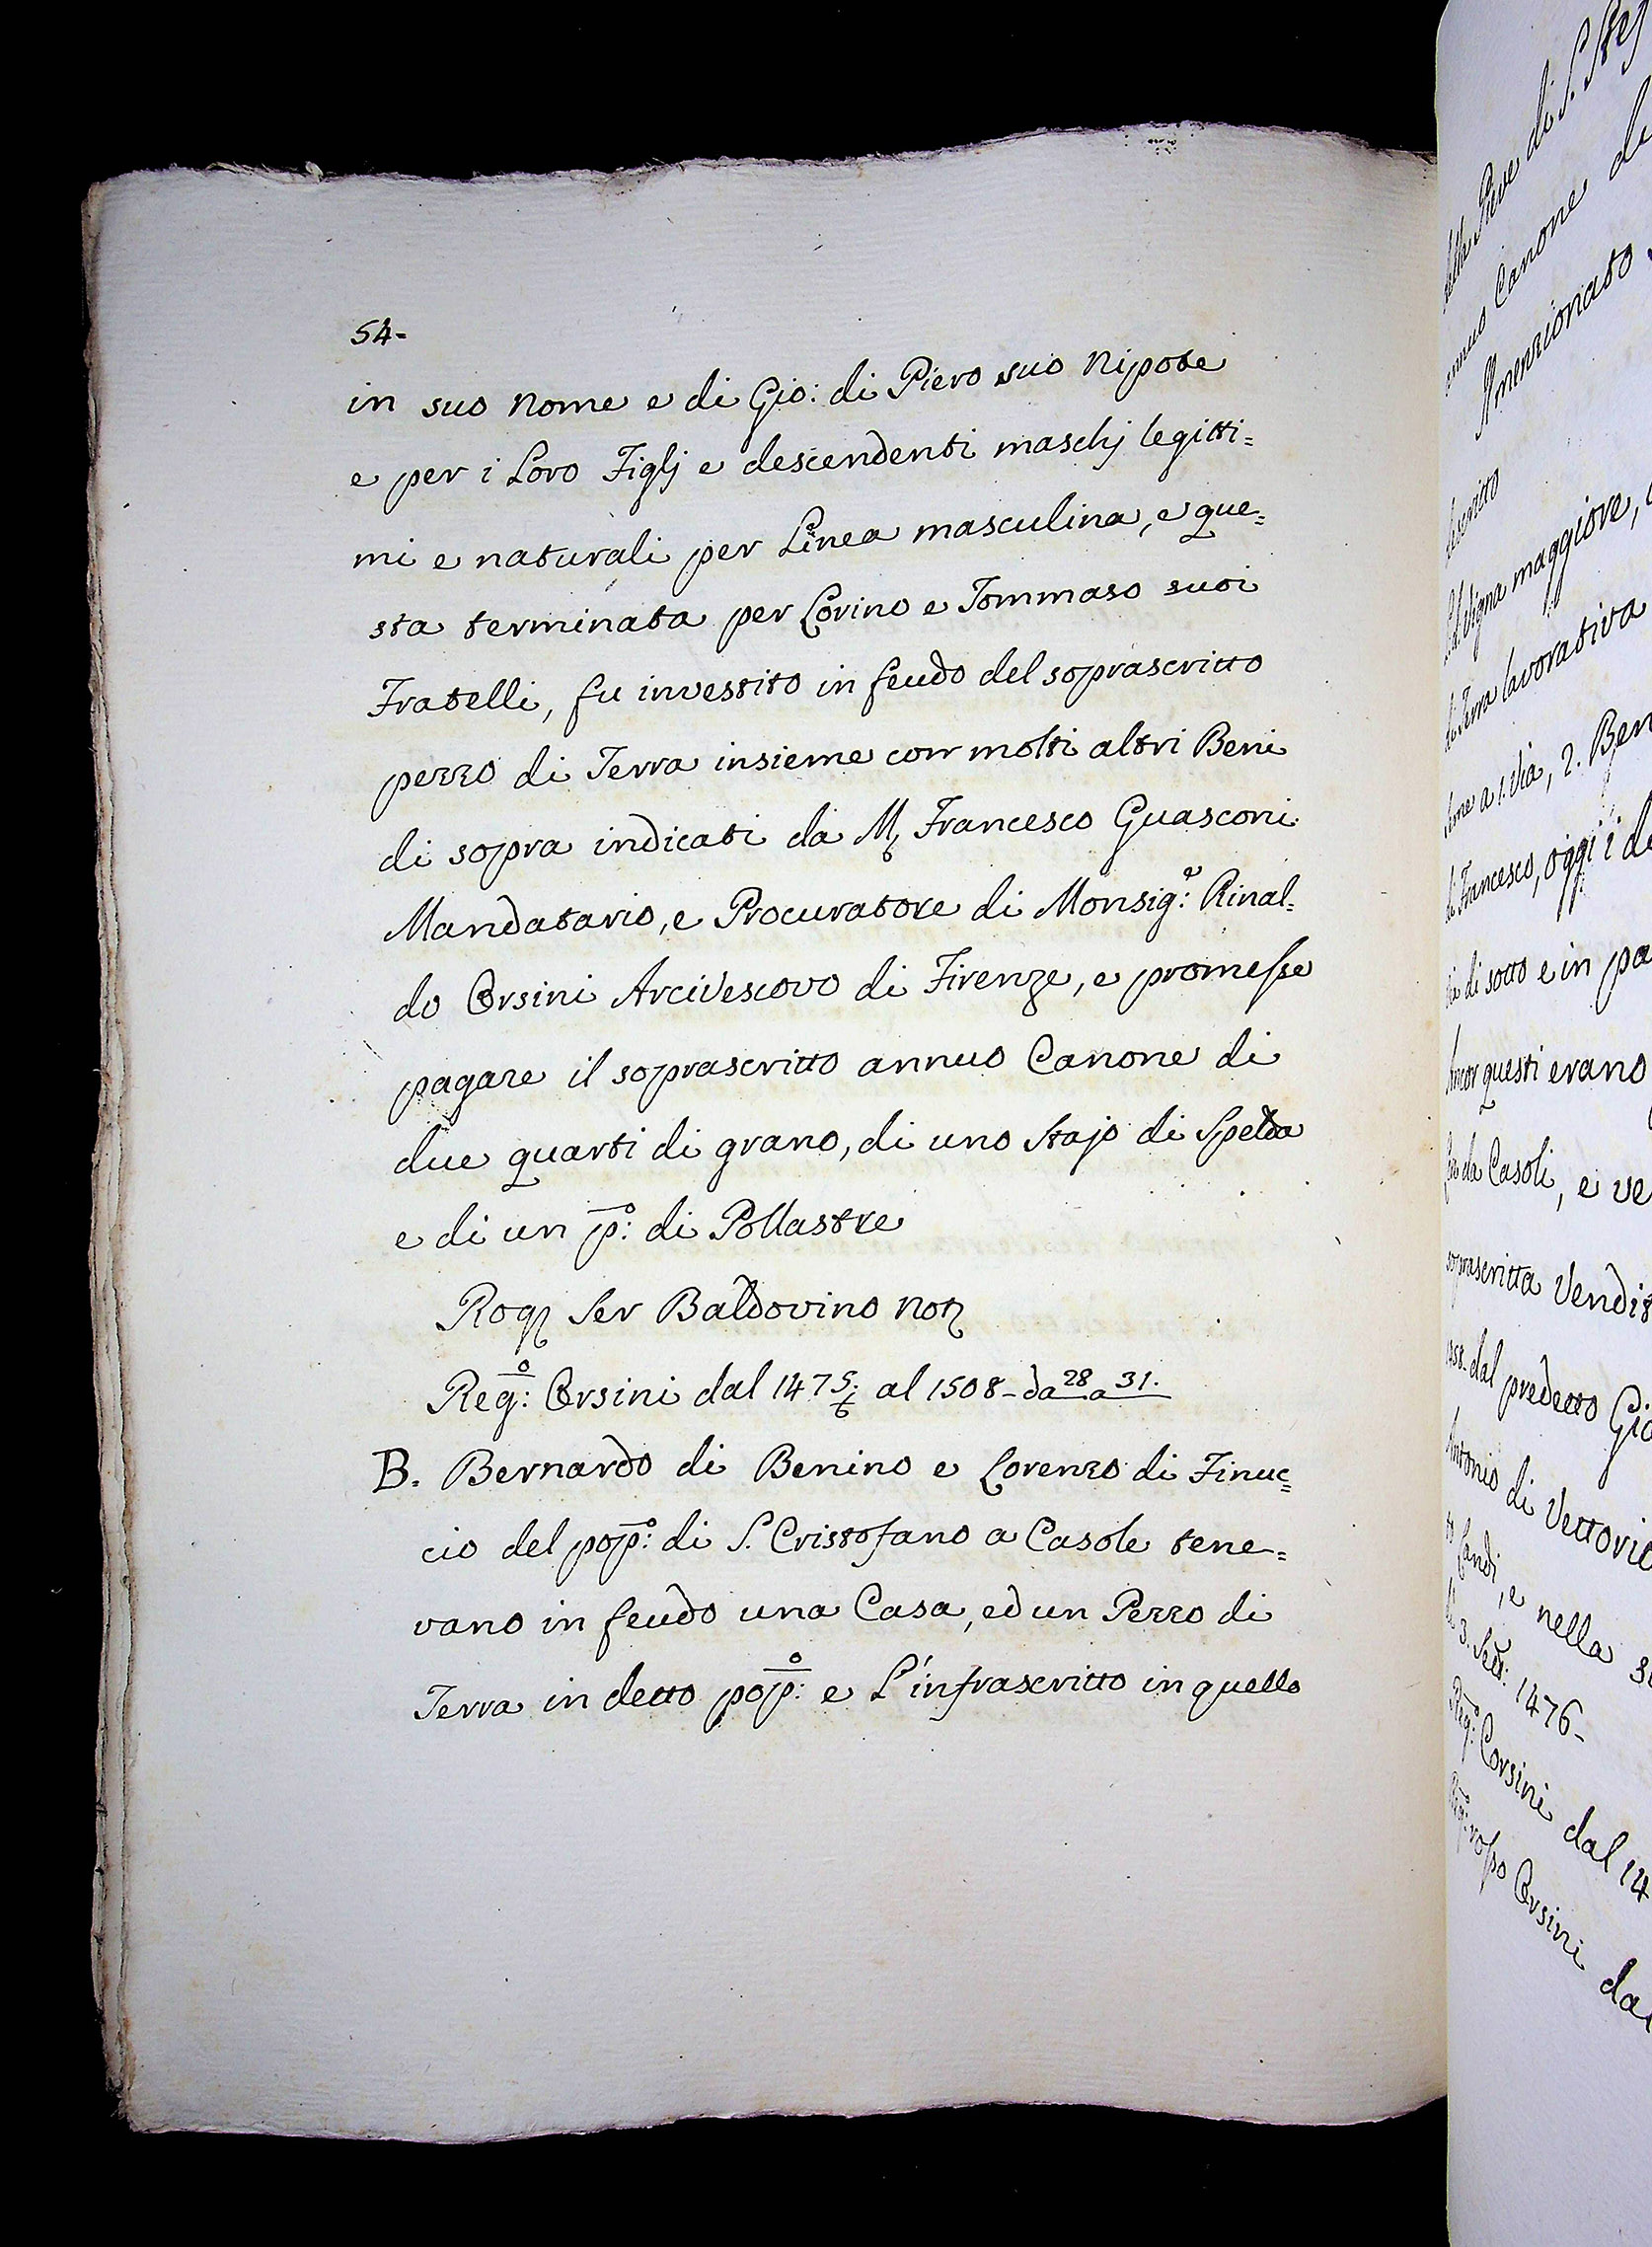 54-
in suo Nome e di Gio: di Piero suo Nipote
e per i Loro Figlj e descendenti maschj legitti=
mi e naturali per Linea masculina, e que=
sta terminata per Lorino e Tommaso suoi
Fratelli, fu investito in feudo del soprascritto
pezzo di Terra insieme con molti altri Beni
di sopra indicati da M. Francesco Guasconi
Mandatario, e Procuratore di Monsig.e: Rinal=
do Orsini Arcivescovo di Firenze, e promesse
pagare il soprascritto annuo Canone di
due quarti di grano, di uno Stajo di Spelda
e di un p:o di Pollastre
Rog. Ser Baldovino Not.
Reg:o Orsini dal 1475/6 al 1508 - da 28 a 31.
B. Bernardo di Benino e Lorenzo di Finuc=
cio del pop:o di S. Cristofano a Casole tene=
vano in feudo una Casa, ed un Pezzo di
Terra in detto pop:o e L'infrascritto in quello
della Pieve di S.
annuo Canone di
menzionato
maggiore,
di Terra lavorativa
a 1. Via, 2. Ben
di Francesco, oggi i
di sotto e in pa
Ancor questi erano
da Casoli, e ve
soprascritta Vendit
dal predetto Gio
Antonio di Vettorio
Landi, e nella
3. 1476-
Reg:o Corsini dal 14
Reg:o rosso Orsini dal